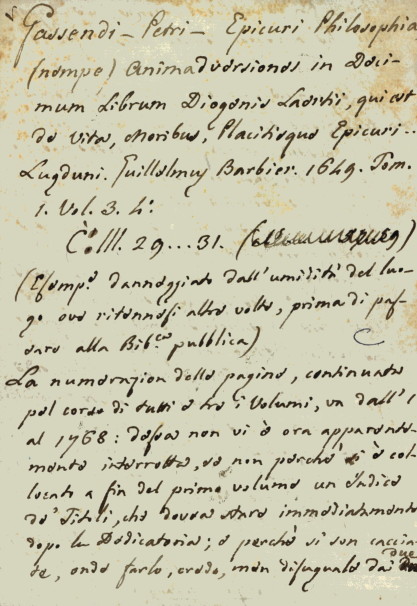 Gassendi - Petri - Epicuri Philosophia
(nempe) Animadversiones in Deci-
mum Librum Diogenis Laertii, qui est
de Vita, Moribus, Placitisque Epicuri..
Lugduni. Guillelmus Barbier. 1649. Tom.
1. Vol. 3. 4.°
C. III. 29...31. (
(Esemp.e danneggiato dall'umidità del luo-
go ove ritennesi altre volte, prima di pas-
sare alla Bib.ca pubblica)
La numerazion delle pagine, continuata
pel corso di tutti e tre i Volumi, va dall'1
al 1768: dessa non vi è ora apparente-
mente interrotta, se non perchè è col-
locati a fin del primo volume un Indice
de' Titoli, che dovea stare immediatamente
dopo la Dedicatoria; e perchè si son caccia-
te, onde farlo, credo, men disuguale dai due